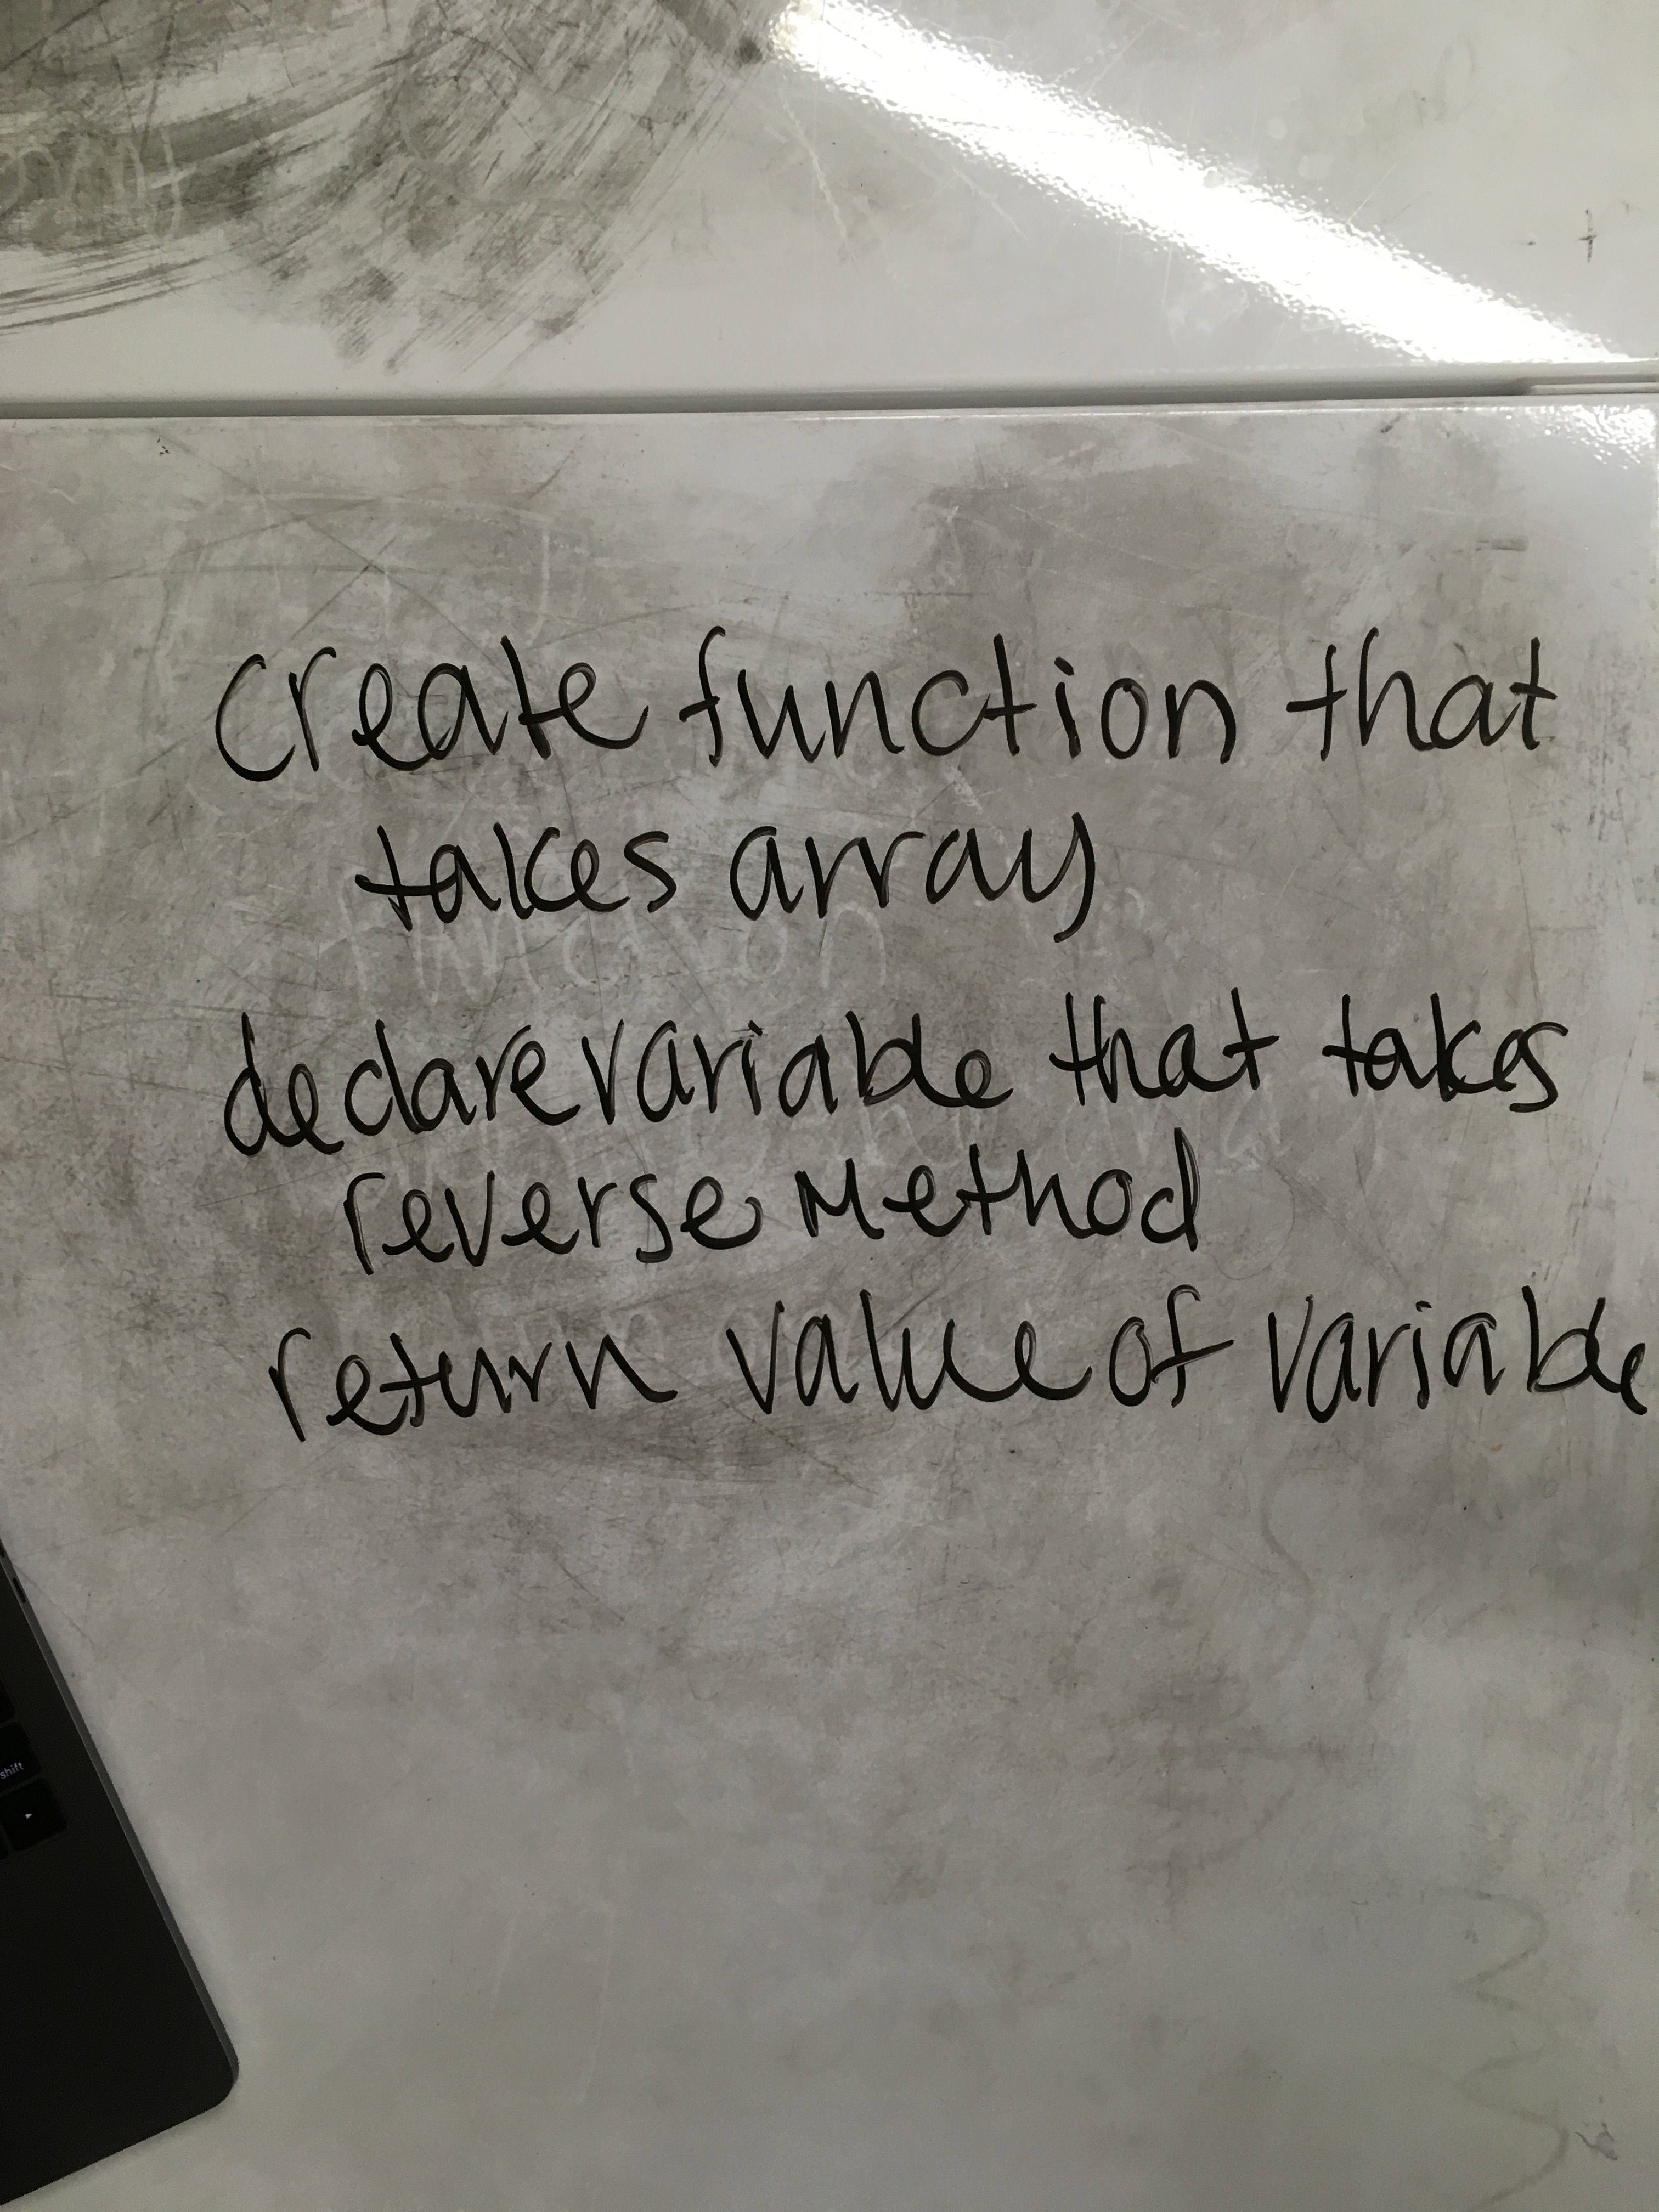 create function that
takes array
declare variable that takes
reverse method
return value of variable
shift